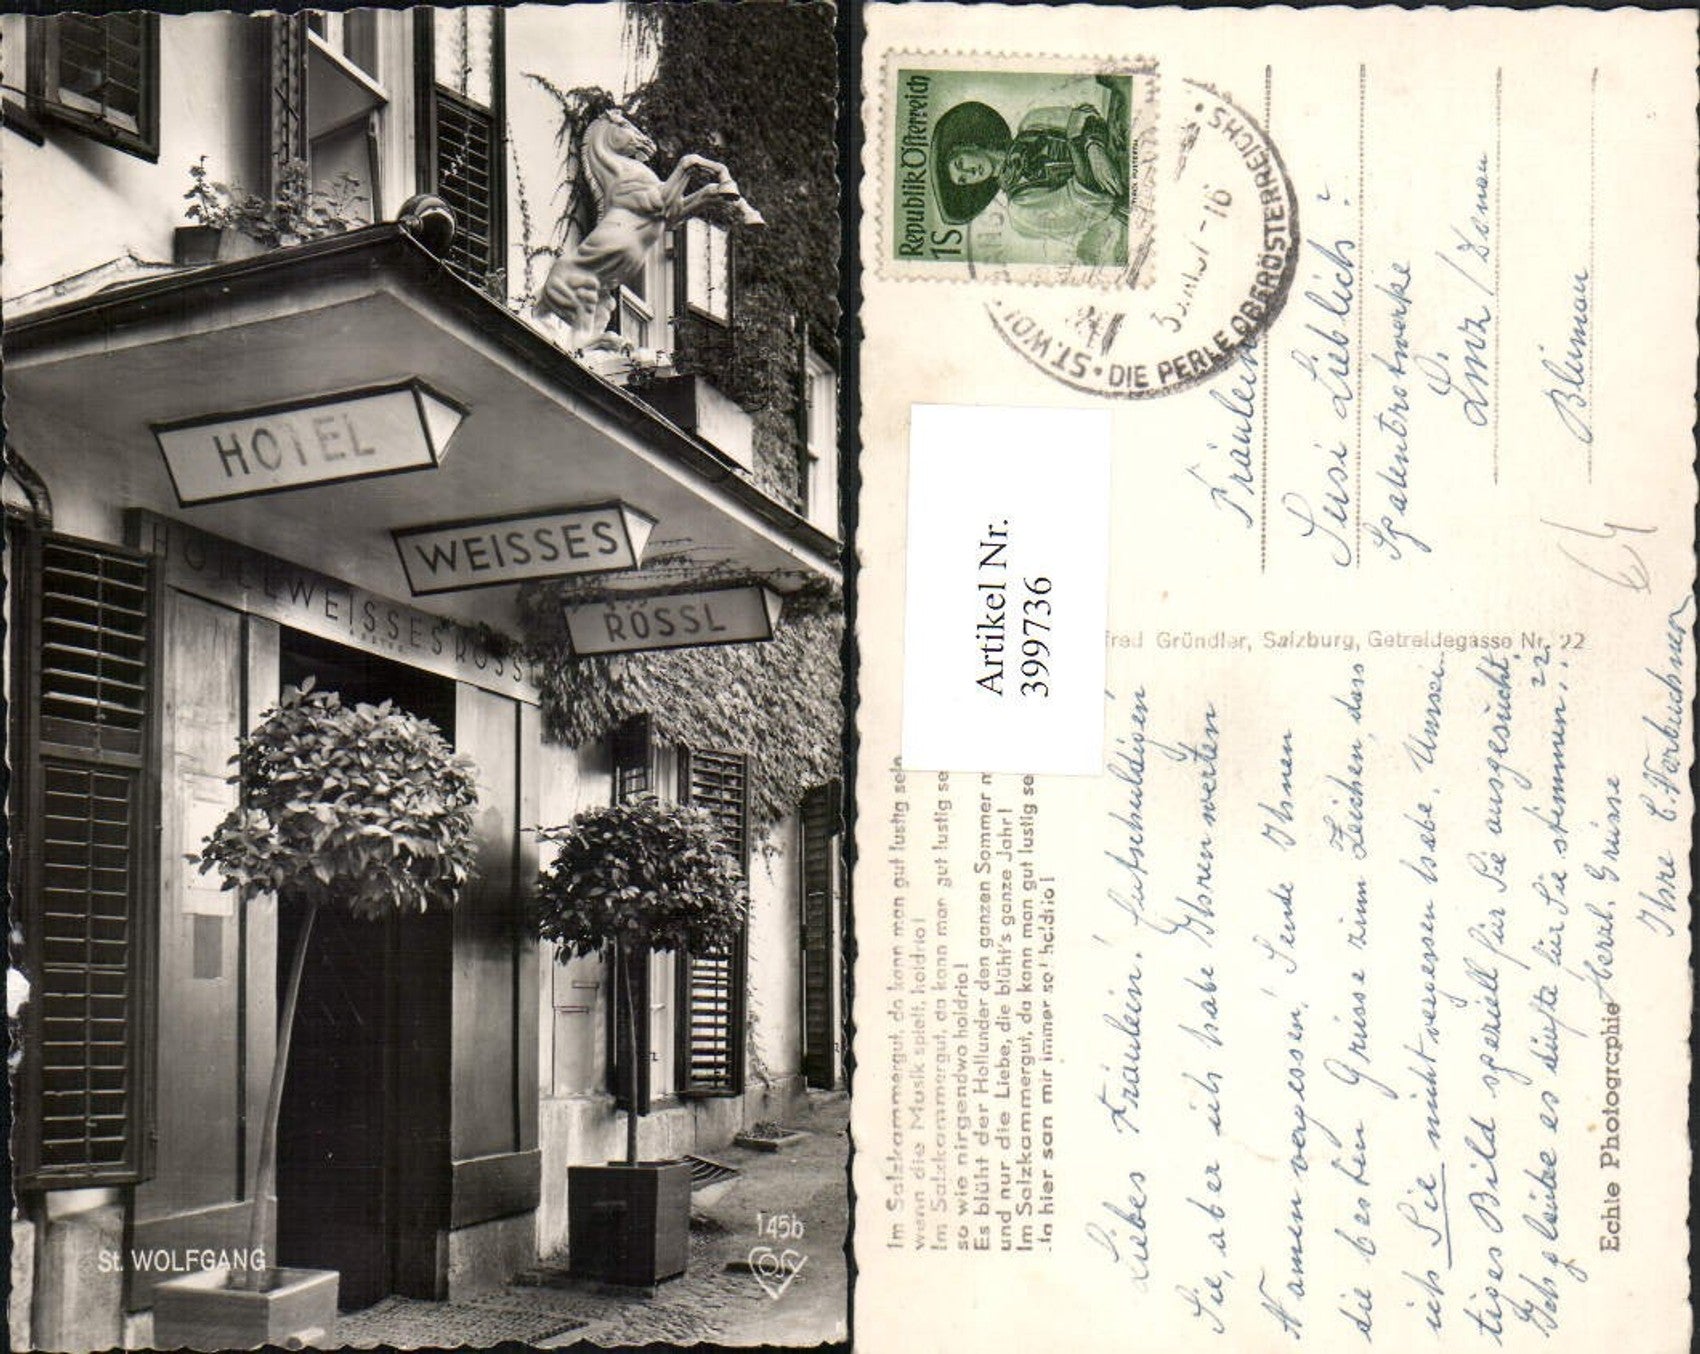 HOTEL
WEISSES
RÖSSL
HOTEL WEISSES RÖSSL
St. WOLFGANG
145b
Republik Österreich
1S
ST. WO
DIE PERLE OBERÖSTERREICHS
Artikel Nr.
399736
fred Gründler, Salzburg, Getreidegasse Nr. 22
Fräulein
Susi Lieblich?
Spatenbrotwerke
Linz / Donau
Blumau
Im Salzkammergut, da kann man gut lustig sein
wenn die Musik spielt, holdrio!
Im Salzkammergut, da kann man gut lustig se
so wie nirgendwo holdrio!
Es blüht der Hollunder den ganzen Sommer m
und nur die Liebe, die blüht's ganze Jahr!
Im Salzkammergut, da kann man gut lustig se
in hier san mir immer so! holdrio!
Liebes Fräulein! Entschuldigen
Sie, aber ich habe Ihren werten
Namen vergessen! Sende Ihnen
die besten Grüsse zum Zeichen, dass
ich Sie nicht vergessen habe.
tiges Bild speziell für Sie ausgesucht,
Ich glaube es dürfte für Sie stimmen!
Herzl. Grüsse
Ihre
Echte Photographie